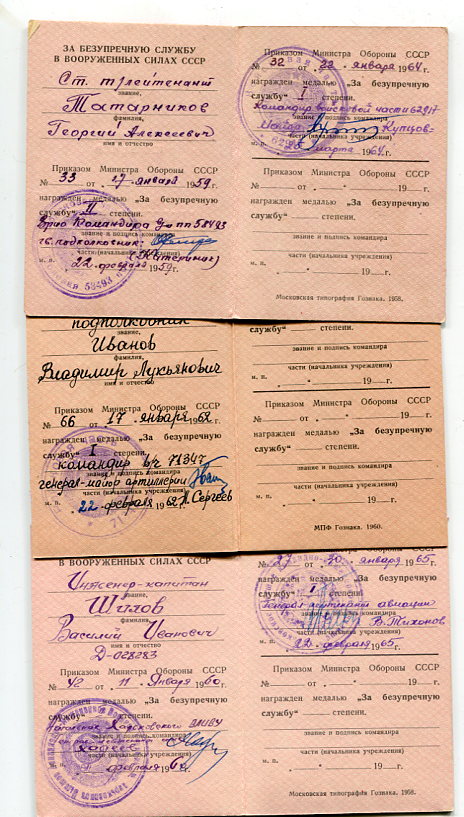 ЗА БЕЗУПРЕЧНУЮ СЛУЖБУ
В ВООРУЖЕННЫХ СИЛАХ СССР
Ст. т/лейтенант
звание,
Татарников
фамилия,
Георгий Алексеевич
имя и отчество
Приказом Министра Обороны СССР
№ 33 от „27" января 1959г.
награжден медалью „За безупречную
службу" II степени.
Врио Командира в/ч пп 58493
звание и подпись командира
гв. подполковник
части (начальника учреждения)
м. п. „22" февраля 1959г.
Приказом Министра Обороны СССР
№ 32 от „22" января 1964г.
награжден медалью „За безупречную
службу" I степени.
Командир войсковой части 62917
звание и подпись командира
Купцов
части (начальника учреждения)
марта 1964г.
Приказом Министра Обороны СССР
№ от „ " 19 г.
награжден медалью „За безупречную
службу" степени.
звание и подпись командира
части (начальника учреждения)
м. п. „ " 19 г.
Московская типография Гознака. 1958.
подполковник
звание,
Иванов
фамилия,
Владимир Лукьянович
имя и отчество
Приказом Министра Обороны СССР
№ 66 от „17" января 1962г.
награжден медалью „За безупречную
службу" I степени.
командир в/ч 71347
звание и подпись командира
генерал-майор артиллерии
части (начальника учреждения)
м. п. „22" февраля 1962г. Сергеев
службу" степени.
звание и подпись командира
части (начальника учреждения)
м. п. „ " 19 г.
Приказом Министра Обороны СССР
№ от „ " 19 г.
награжден медалью „За безупречную
службу" степени.
звание и подпись командира
части (начальника учреждения)
м. п. „ " 19 г.
МПФ Гознака. 1960.
В ВООРУЖЕННЫХ СИЛАХ СССР
Инженер-капитан
звание,
Шилов
фамилия,
Василий Иванович
имя и отчество
Д-028283
Приказом Министра Обороны СССР
№ 42 от „11" января 1960г.
награжден медалью „За безупречную
службу" степени.
Начальник Харьковского
звание и подпись командира
части (начальника учреждения)
февраля 1960г.
№ 27 от „20" января 1965г.
награжден медалью „За безупречную
службу" I степени.
генерал-лейтенант авиации
звание и подпись командира
В. Тихонов
части (начальника учреждения)
22 февраля 1965г.
Приказом Министра Обороны СССР
№ от „ " 19 г.
награжден медалью „За безупречную
службу" степени.
звание и подпись командира
части (начальника учреждения)
м. п. „ " 19 г.
Московская типография Гознака. 1958.